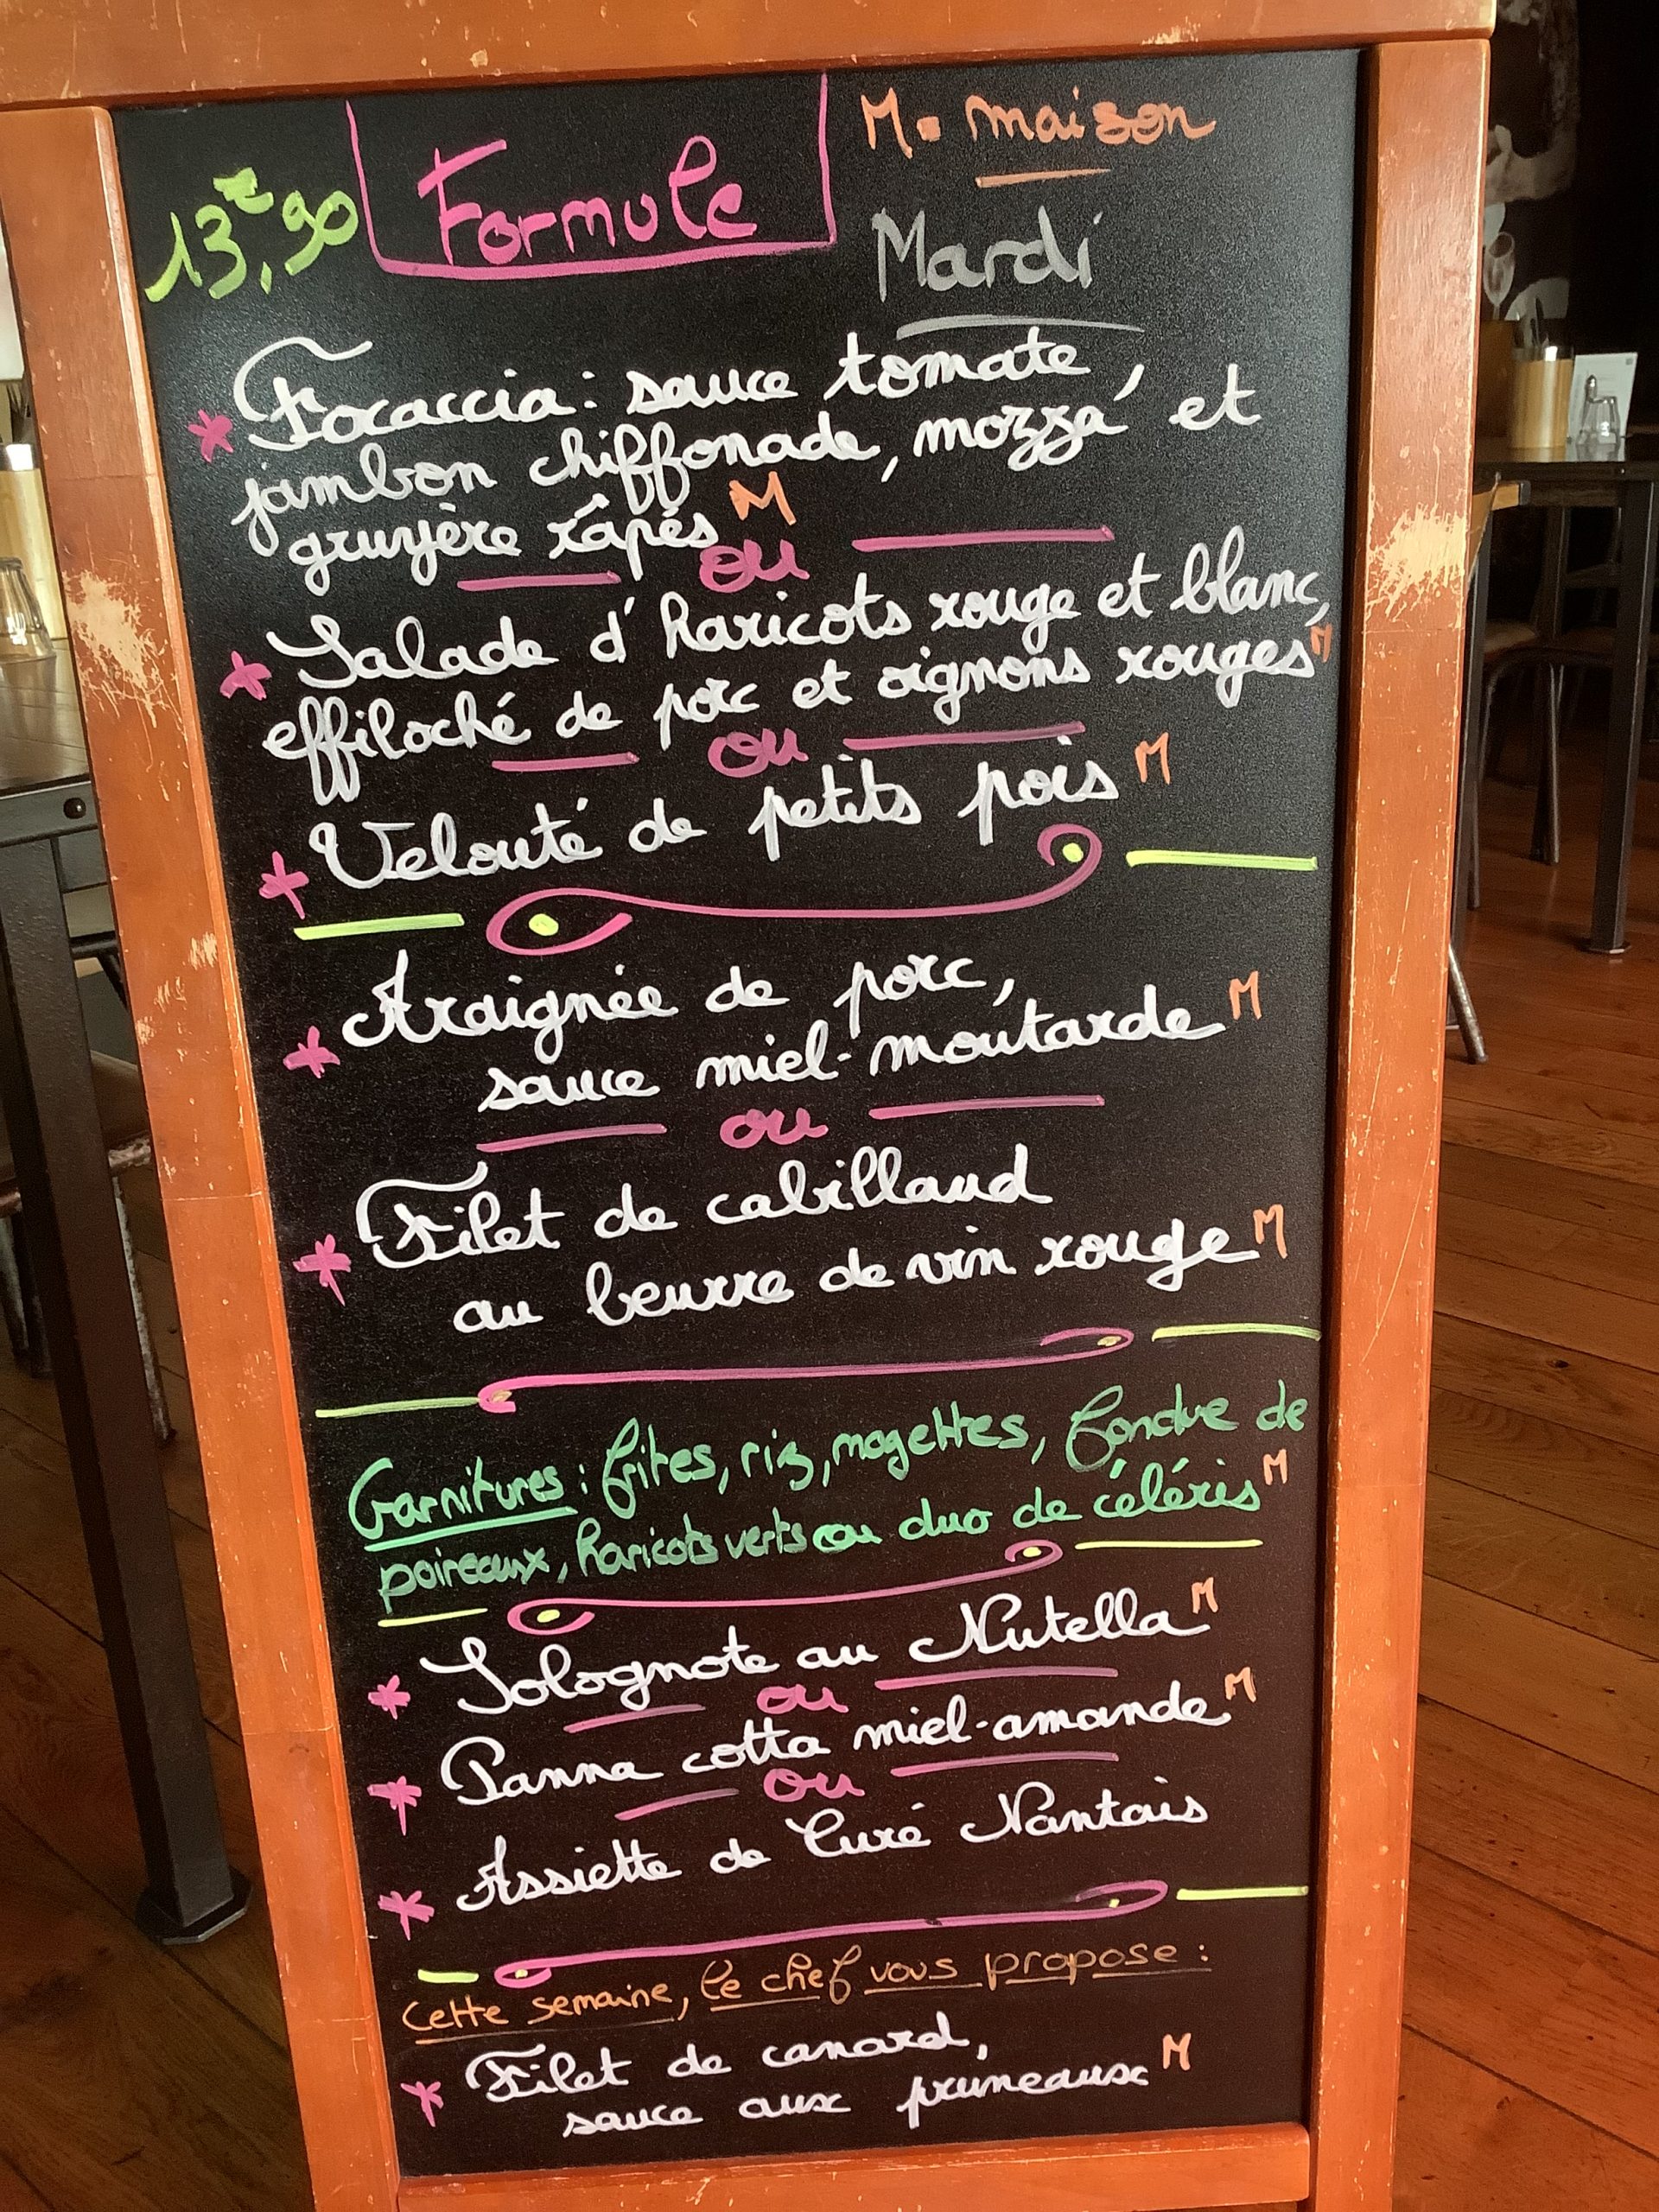 13€,90 Formule M = maison
Mardi
* Focaccia : sauce tomate,
jambon chiffonade, mozza' et
gruyère râpés M
ou
* Salade d'haricots rouge et blanc,
effiloché de porc et oignons rouges M
ou
* Velouté de petits pois M
* Araignée de porc,
sauce miel-moutarde M
ou
* Filet de cabillaud
au beurre de vin rouge M
Garnitures : frites, riz, mogettes, fondue de
poireaux, haricots verts ou duo de céléris M
* Solognote au Nutella M
ou
* Panna cotta miel-amande M
ou
* Assiette de Curé Nantais
Cette semaine, le chef vous propose :
* Filet de canard,
sauce aux pruneaux M